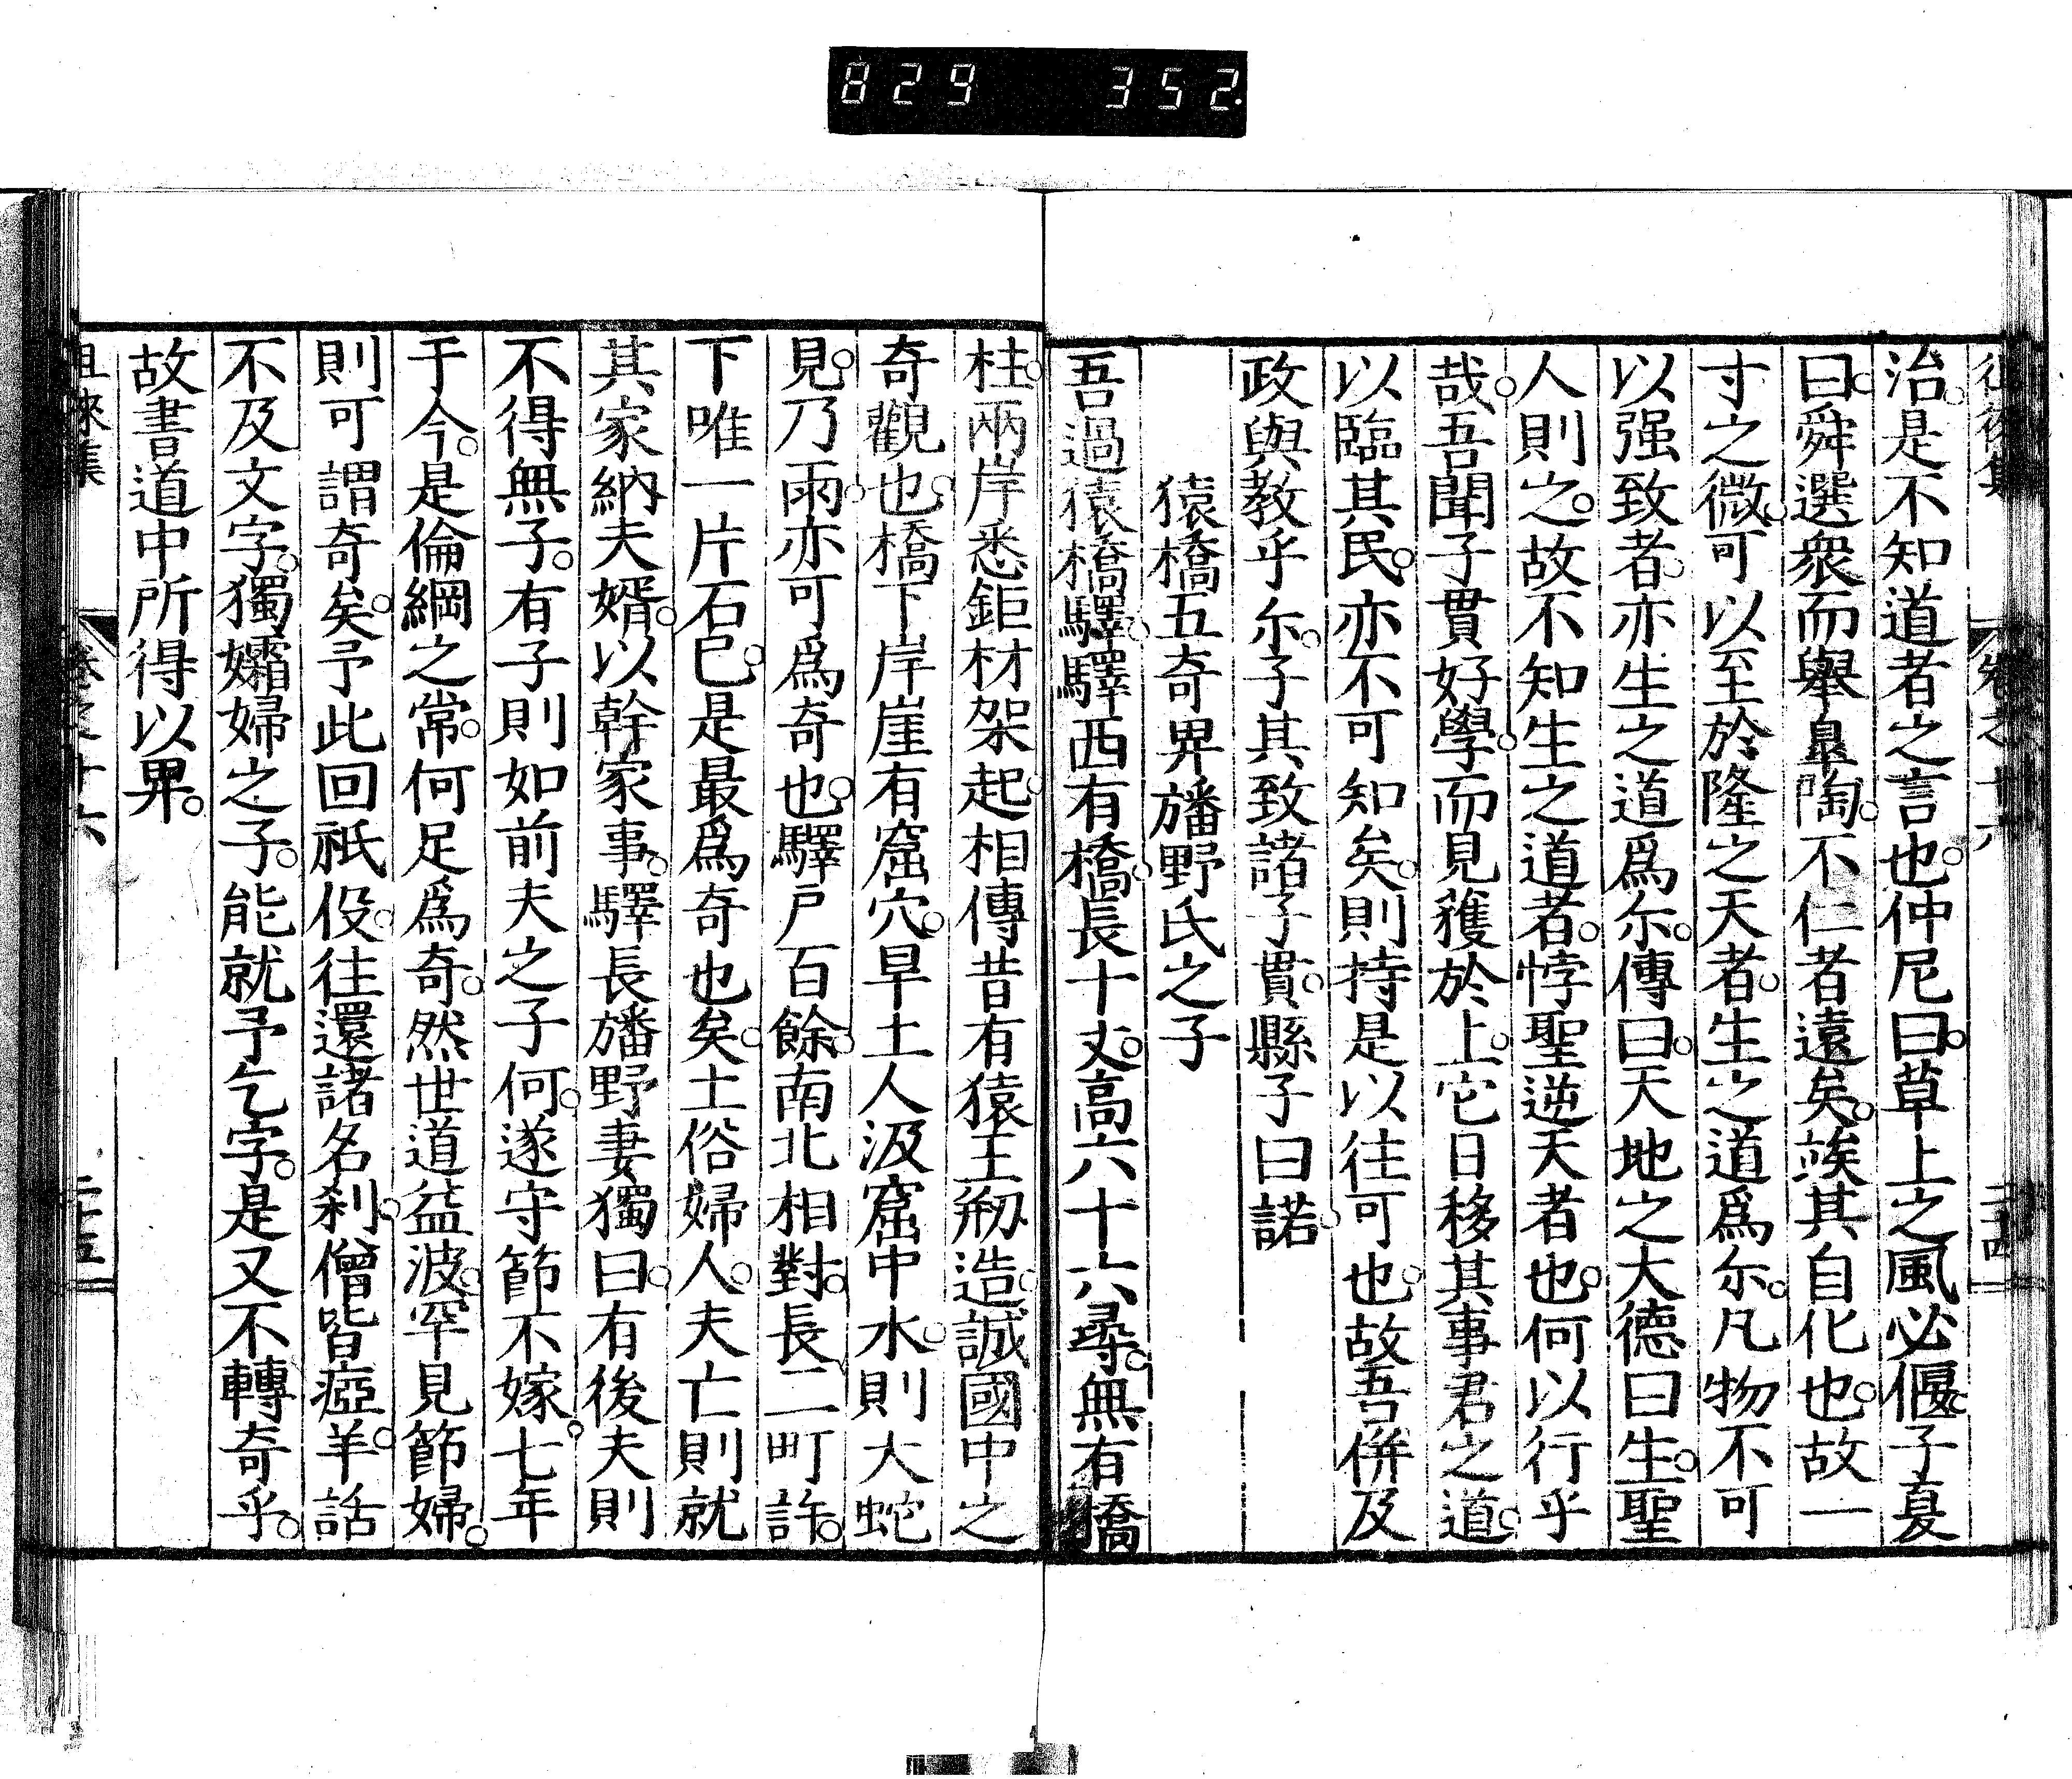 829 352.
治。是不知道者之言也。仲尼曰。草上之風必偃。子夏
曰。舜選衆而舉皐陶。不仁者遠矣。竢其自化也。故一
寸之微。可以至於隆之天者。生之道爲尓。凡物不可
以强致者。亦生之道爲尓。傳曰。天地之大德曰生。聖
人則之。故不知生之道者。悖聖逆天者也。何以行乎
哉。吾聞子貫好學。而見獲於上。它日移其事君之道。
以臨其民。亦不可知矣。則持是以往可也。故吾併及
政與敎乎尓。子其致諸子貫。縣子曰諾
猿橋五奇畀旙野氏之子
吾過猿橋驛。驛西有橋。長十丈。高六十六尋。無有橋
柱。兩岸悉鉅材架起。相傳昔有猿王剏造。誠國中之
奇觀也。橋下岸崖有窟穴。旱土人汲窟中水。則大蛇
見。乃雨。亦可爲奇也。驛戶百餘。南北相對。長二町許。
下唯一片石已。是最爲奇也矣。土俗婦人。夫亡則就
其家納夫婿。以幹家事。驛長旙野妻獨曰。有後夫則
不得無子。有子則如前夫之子何。遂守節不嫁。七年
于今。是倫綱之常。何足爲奇。然世道益波。罕見節婦。
則可謂奇矣。予此回祇役。往還諸名刹。僧皆瘂羊。話
不及文字。獨孀婦之子。能就予乞字。是又不轉奇乎。
故書道中所得以畀。
徠集 卷之十六 二十五